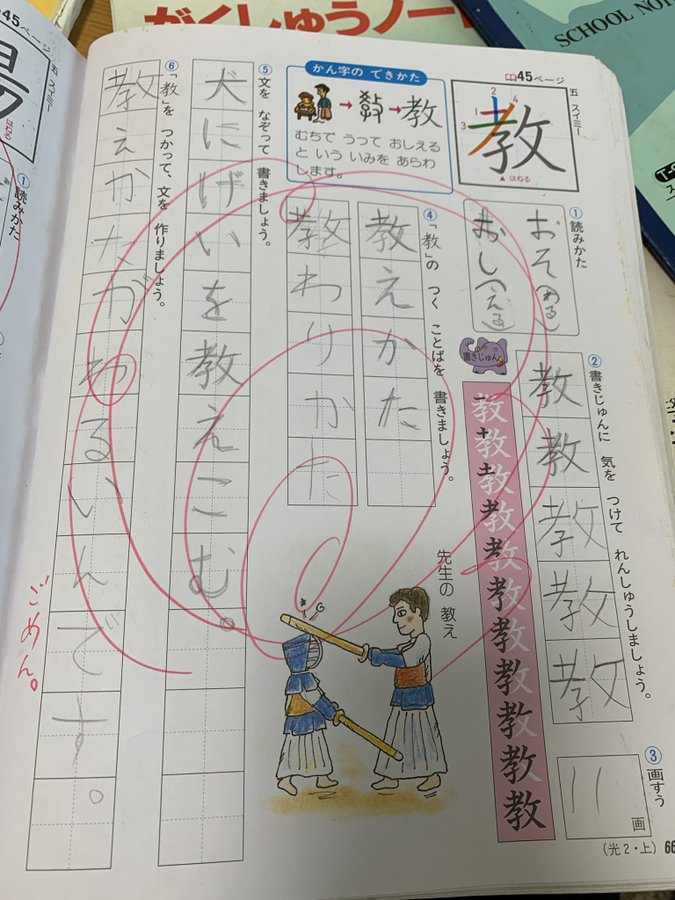 がくしゅうノート
SCHOOL NOT
45ページ
はねる
①読みかた
45ページ
五 スイミー
教
1
2
3
4
▲はねる
かん字の できかた
→ →教
むちで うって おしえる
と いう いみを あらわ
します。
①読みかた
おそ(わる)
おし(える)
②書きじゅんに 気を つけて れんしゅうしましょう。
教
教
教
教
教
書きじゅん
教
教
教
教
教
教
教
教
教
教
教
③画すう
11画
④「教」の つく ことばを 書きましょう。
教えかた
教わりかた
先生の 教え
⑤文を なぞって 書きましょう。
犬にげいを教えこむ。
⑥「教」を つかって、文を 作りましょう。
教えかたがわるいんです。
ごめん。
(光2・上) 66